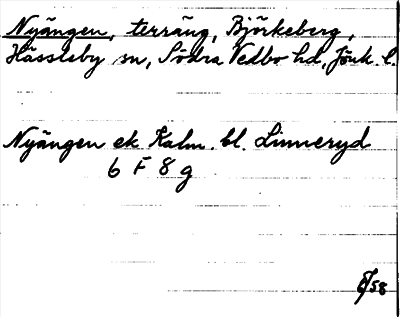 Nyängen, terräng, Björkeberg,
Hässleby sn, Södra Vedbo hd, Jönk. l.
Nyängen ek Kalm. bl. Linneryd
6 F 8 g
/58